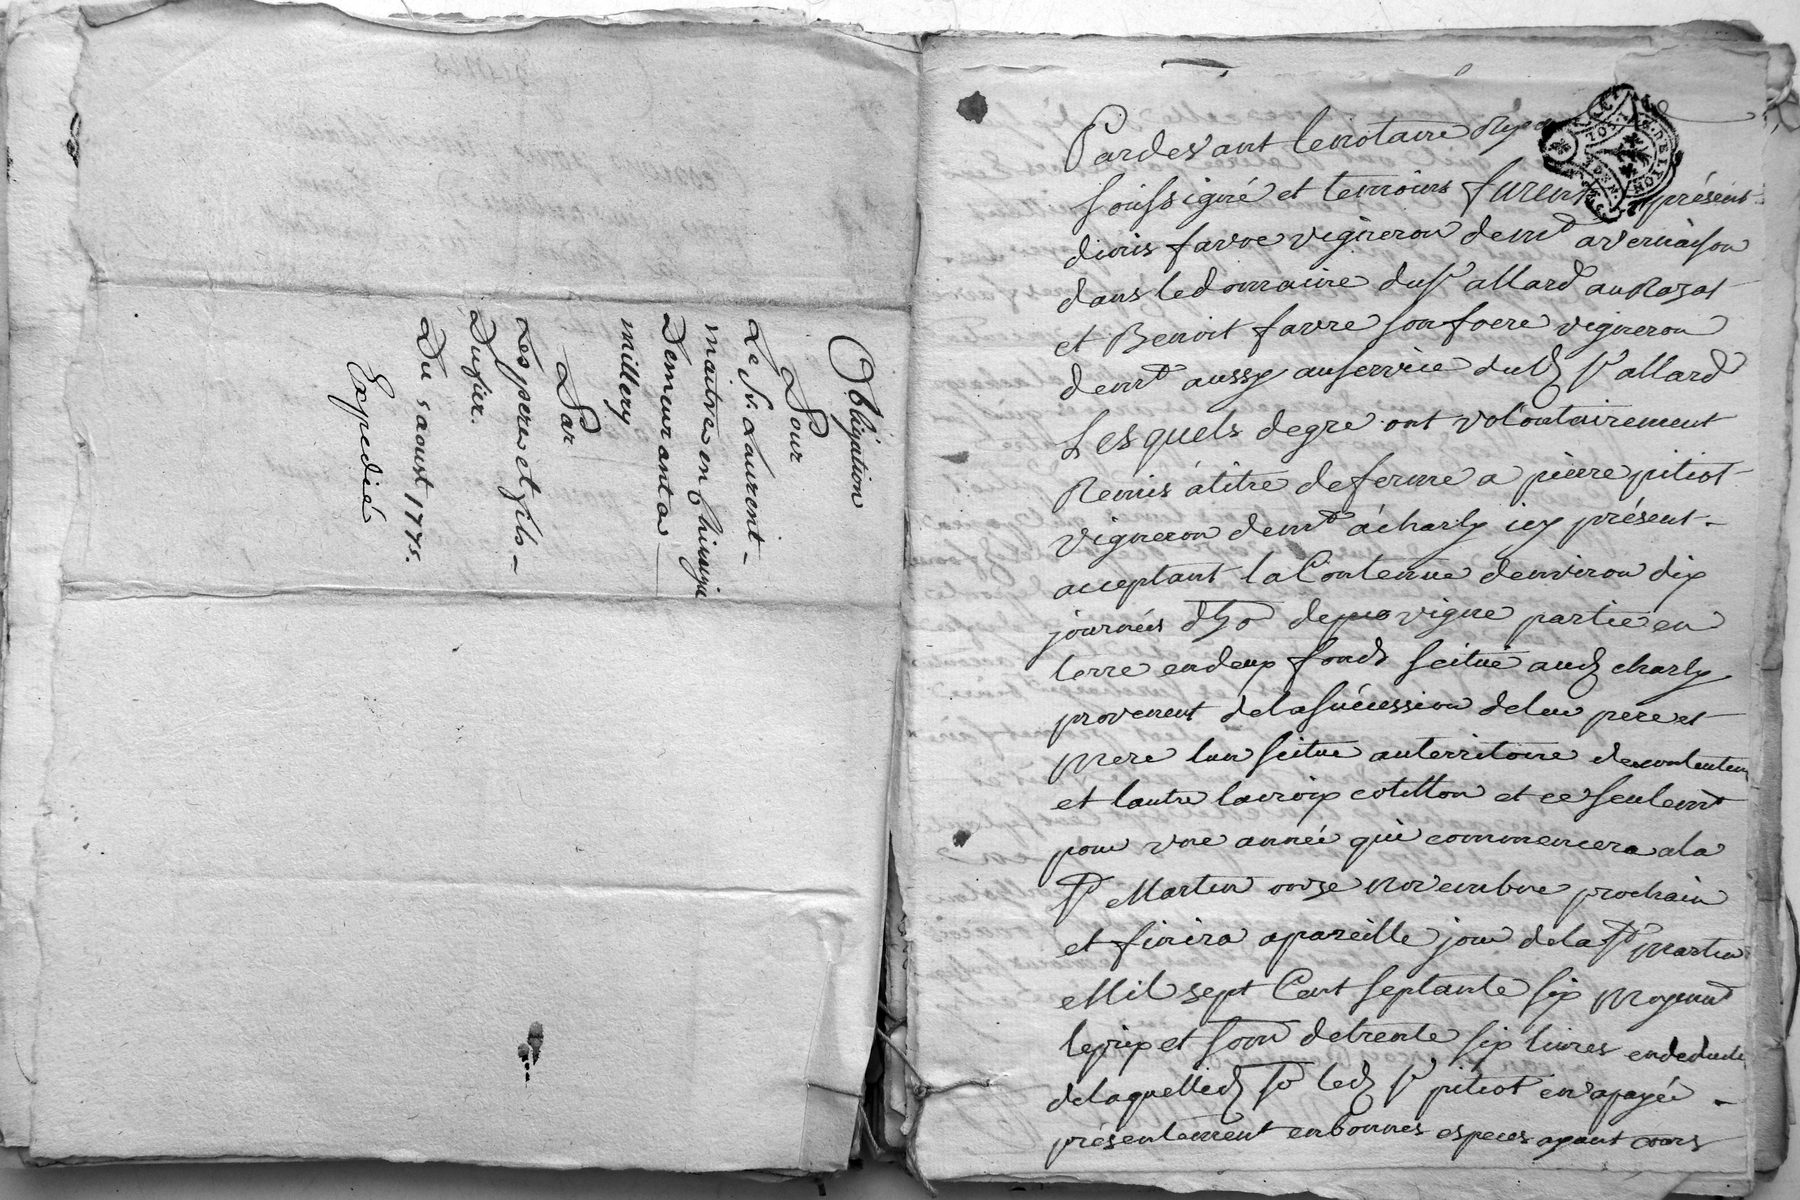 Obligation
Pour
Le Sr. Laurent
maitre en Chirurgie
Demeurant a
millery
Par
Les pere et fils
Dufier.
Du 5 aoust 1775.
Expedié
Pardevant le notaire Royal
soussigné et temoins furent présent
dionis favre vigneron demt a vernaison
dans le domaine du Sr allard au Razat
et Benoit favre son frere vigneron
demt aussy au service dud Sr allard
Lesquels degré ont volontairement
Remis a titre de ferme a pierre pitiot
vigneron demt a charly icy présent
acceptant la Contenue denviron dix
journées de vigne partie en
terre en deux fonds scitué aud charly
provenent de la succession de leur pere et
mere lun scitue au territoire de
et lautre la croix cotillon et ce seulemt
pour une année qui commencera a la
St Martin onze novembre prochain
et finira a pareille jour de la St martin
Mil sept Cent septante six moyennt
le prix et som de trente six livres en deduction
de laquelle d so led Sr pitiot en a payé
présentement en bonnes especes ayant cours